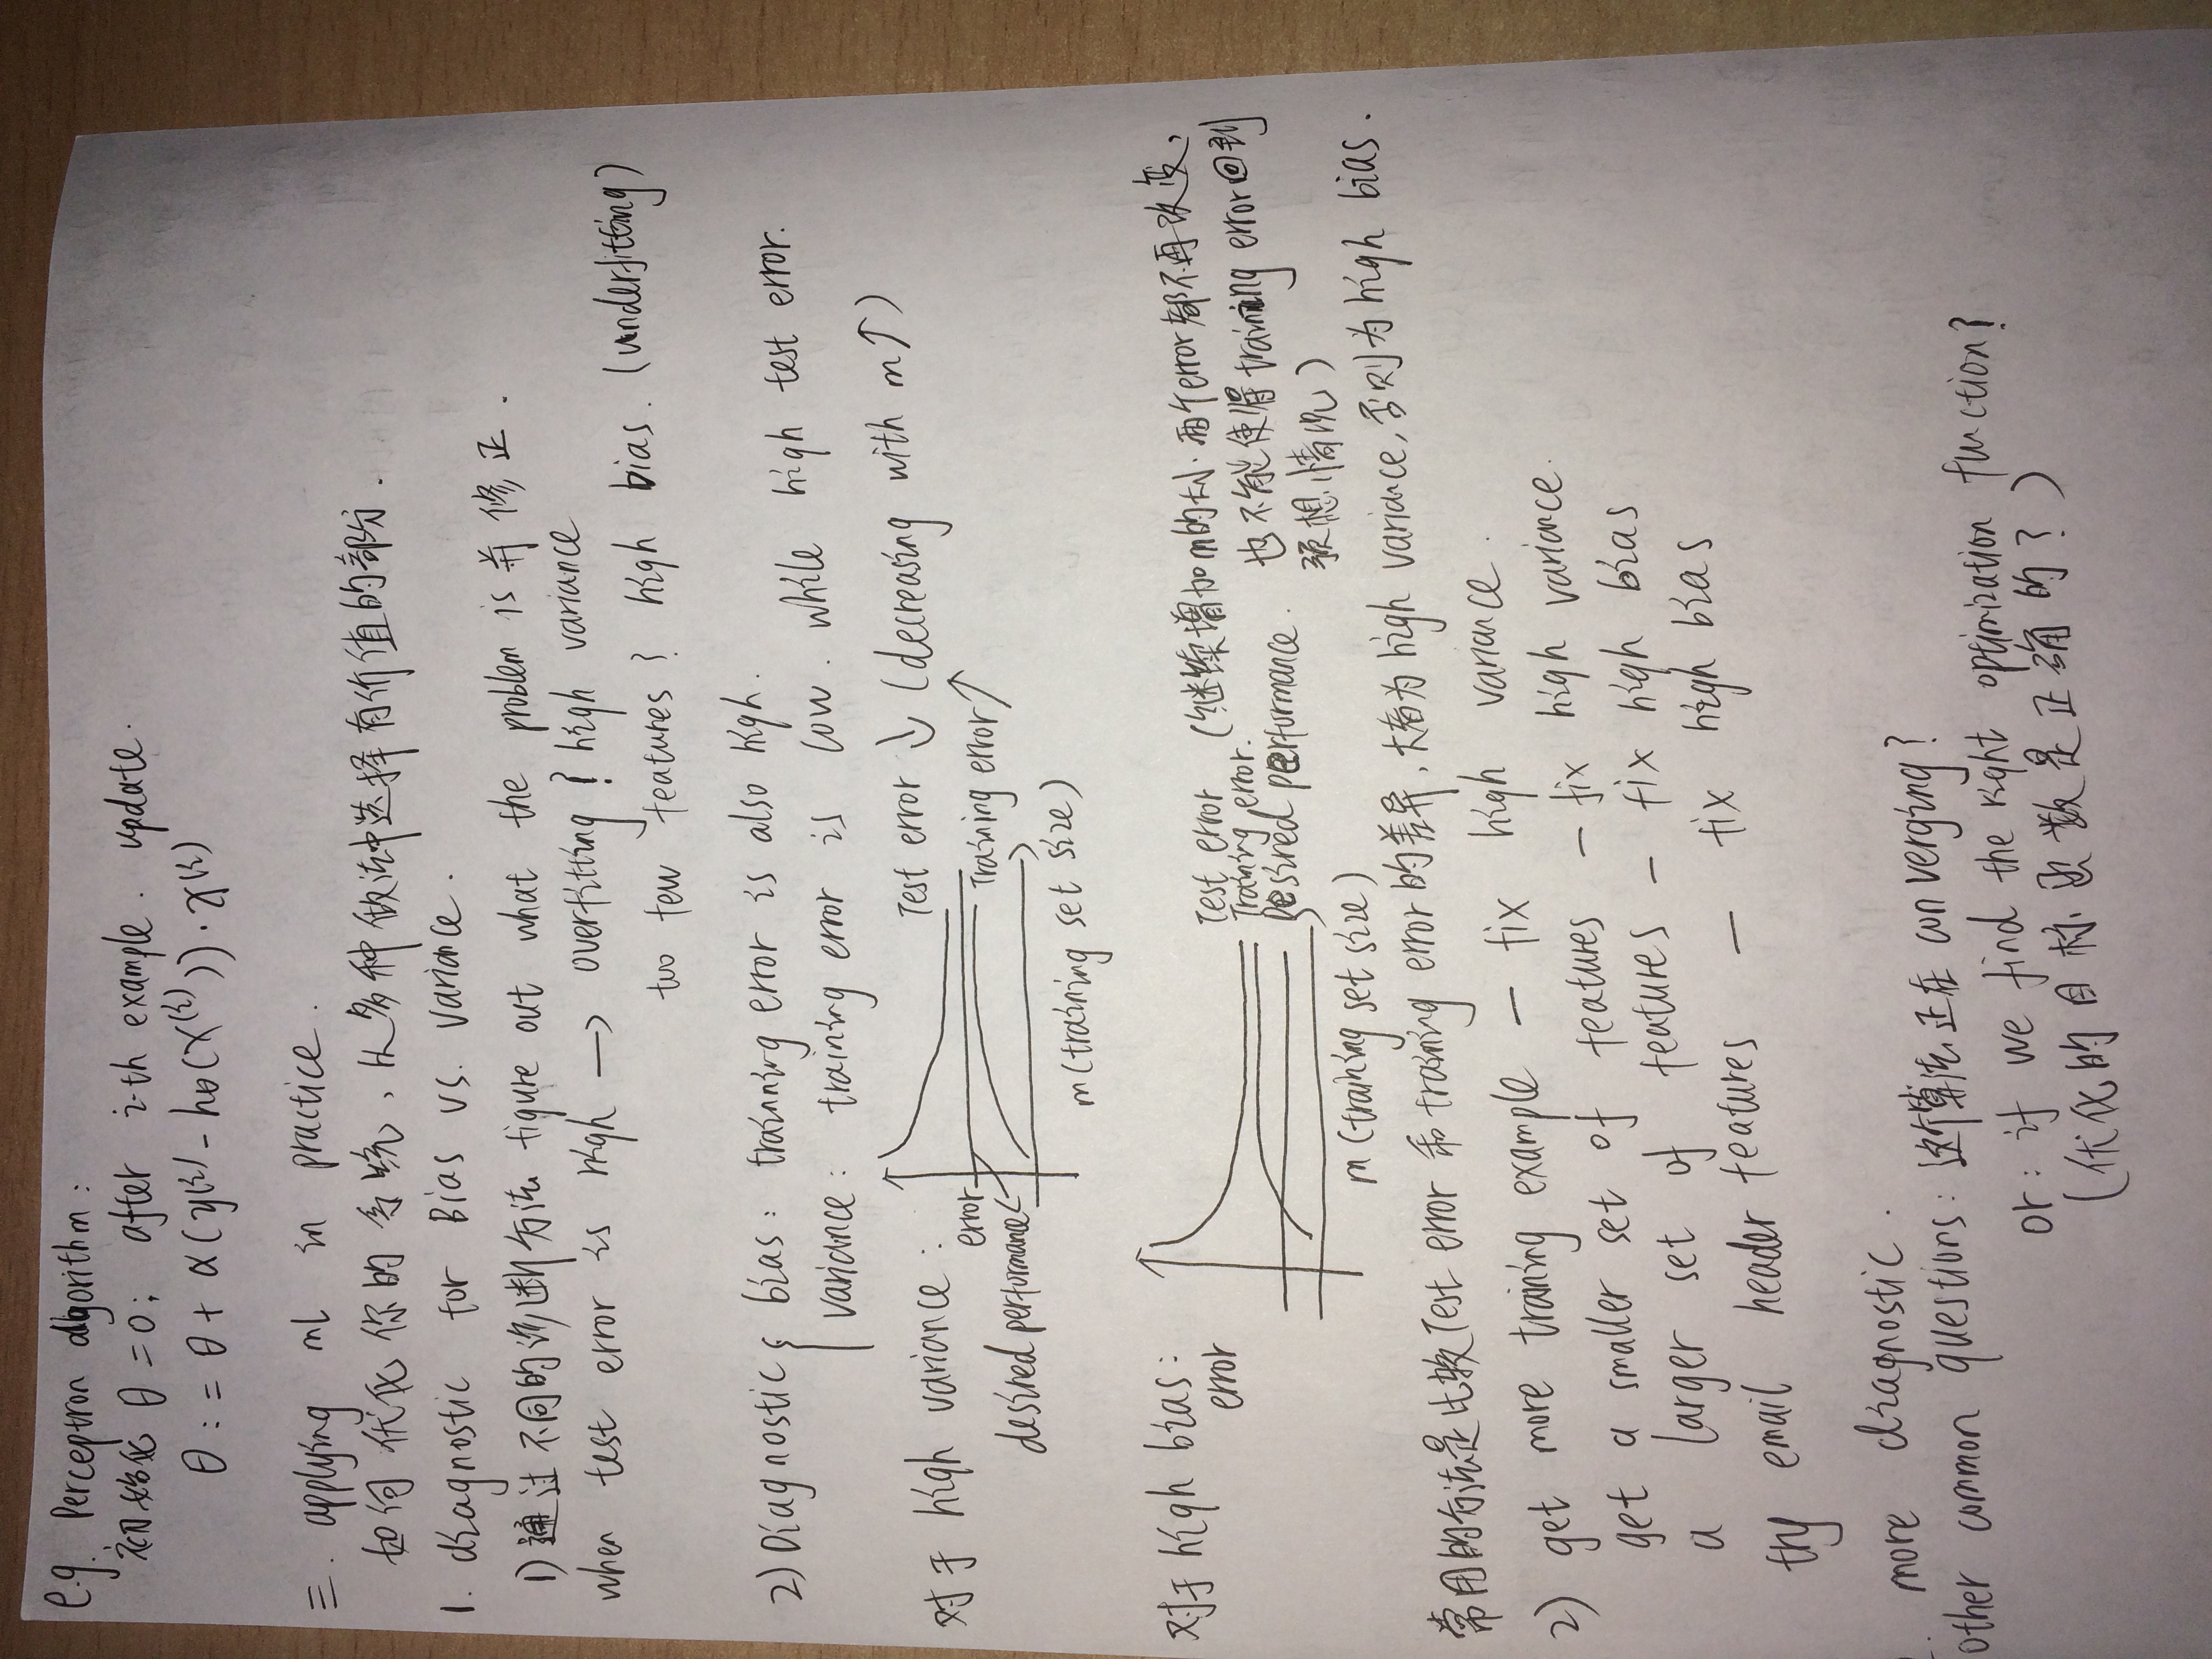 e.g. Perceptron algorithm:
初始化 θ = 0; after i-th example. update.
θ := θ + α(y⁽ⁱ⁾ - hθ(x⁽ⁱ⁾))·x⁽ⁱ⁾
三. applying ml in practice.
如何优化你的系统,从多种做法中选择有价值的部分.
1. diagnostic for Bias vs. Variance.
1) 通过不同的诊断方法 figure out what the problem is 并修正.
when test error is high → overfitting? high variance
too few features? high bias. (underfitting)
2) Diagnostic { bias: trainning error is also high.
variance: training error is low. while high test error.
对于 high variance:
Test error ↓ (decreasing with m↑)
error
Training error ↑
desired performance
m (training set size)
对于 high bias:
error
Test error (继续增加m的大小.两个error都不再改变,
Training error.
也不能使得training error回到
Desired performance.
预想情况)
m (training set size)
常用的方法是比较Test error 和 training error的差异,大者为high variance,否则为high bias.
2) get more training example — fix high variance.
get a smaller set of features — fix high variance.
a larger set of features — fix high bias
try email header features — fix high bias
. more diagnostic.
other common questions: 这个算法正在 converging?
or: if we find the right optimization function?
(优化的目标函数是正确的?)